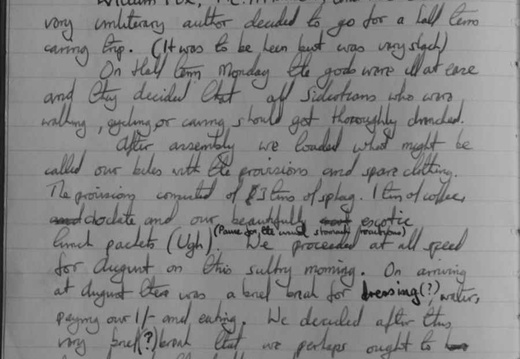 very unliterary author decided to go for a half term
caving trip. (It was to be keen but was very slack)
On Half term Monday the gods were ill at ease
and they decided that all Sidcotians who were
walking, cycling, or caving should get thoroughly drenched.
After assembly we loaded what might be
called our bikes with the provisions and spare clothing.
The provisions consisted of 3 tins of spag. 1 tin of
and our beautifully exotic
lunch packets (Ugh) (Pause for the usual stomach reactions). We proceeded at all speed
for august on this sultry morning. On arriving
at august there was a brief break for dressing(?), water,
paying our 1/- and eating. We decided after this
very brief(?) break that we perhaps ought to